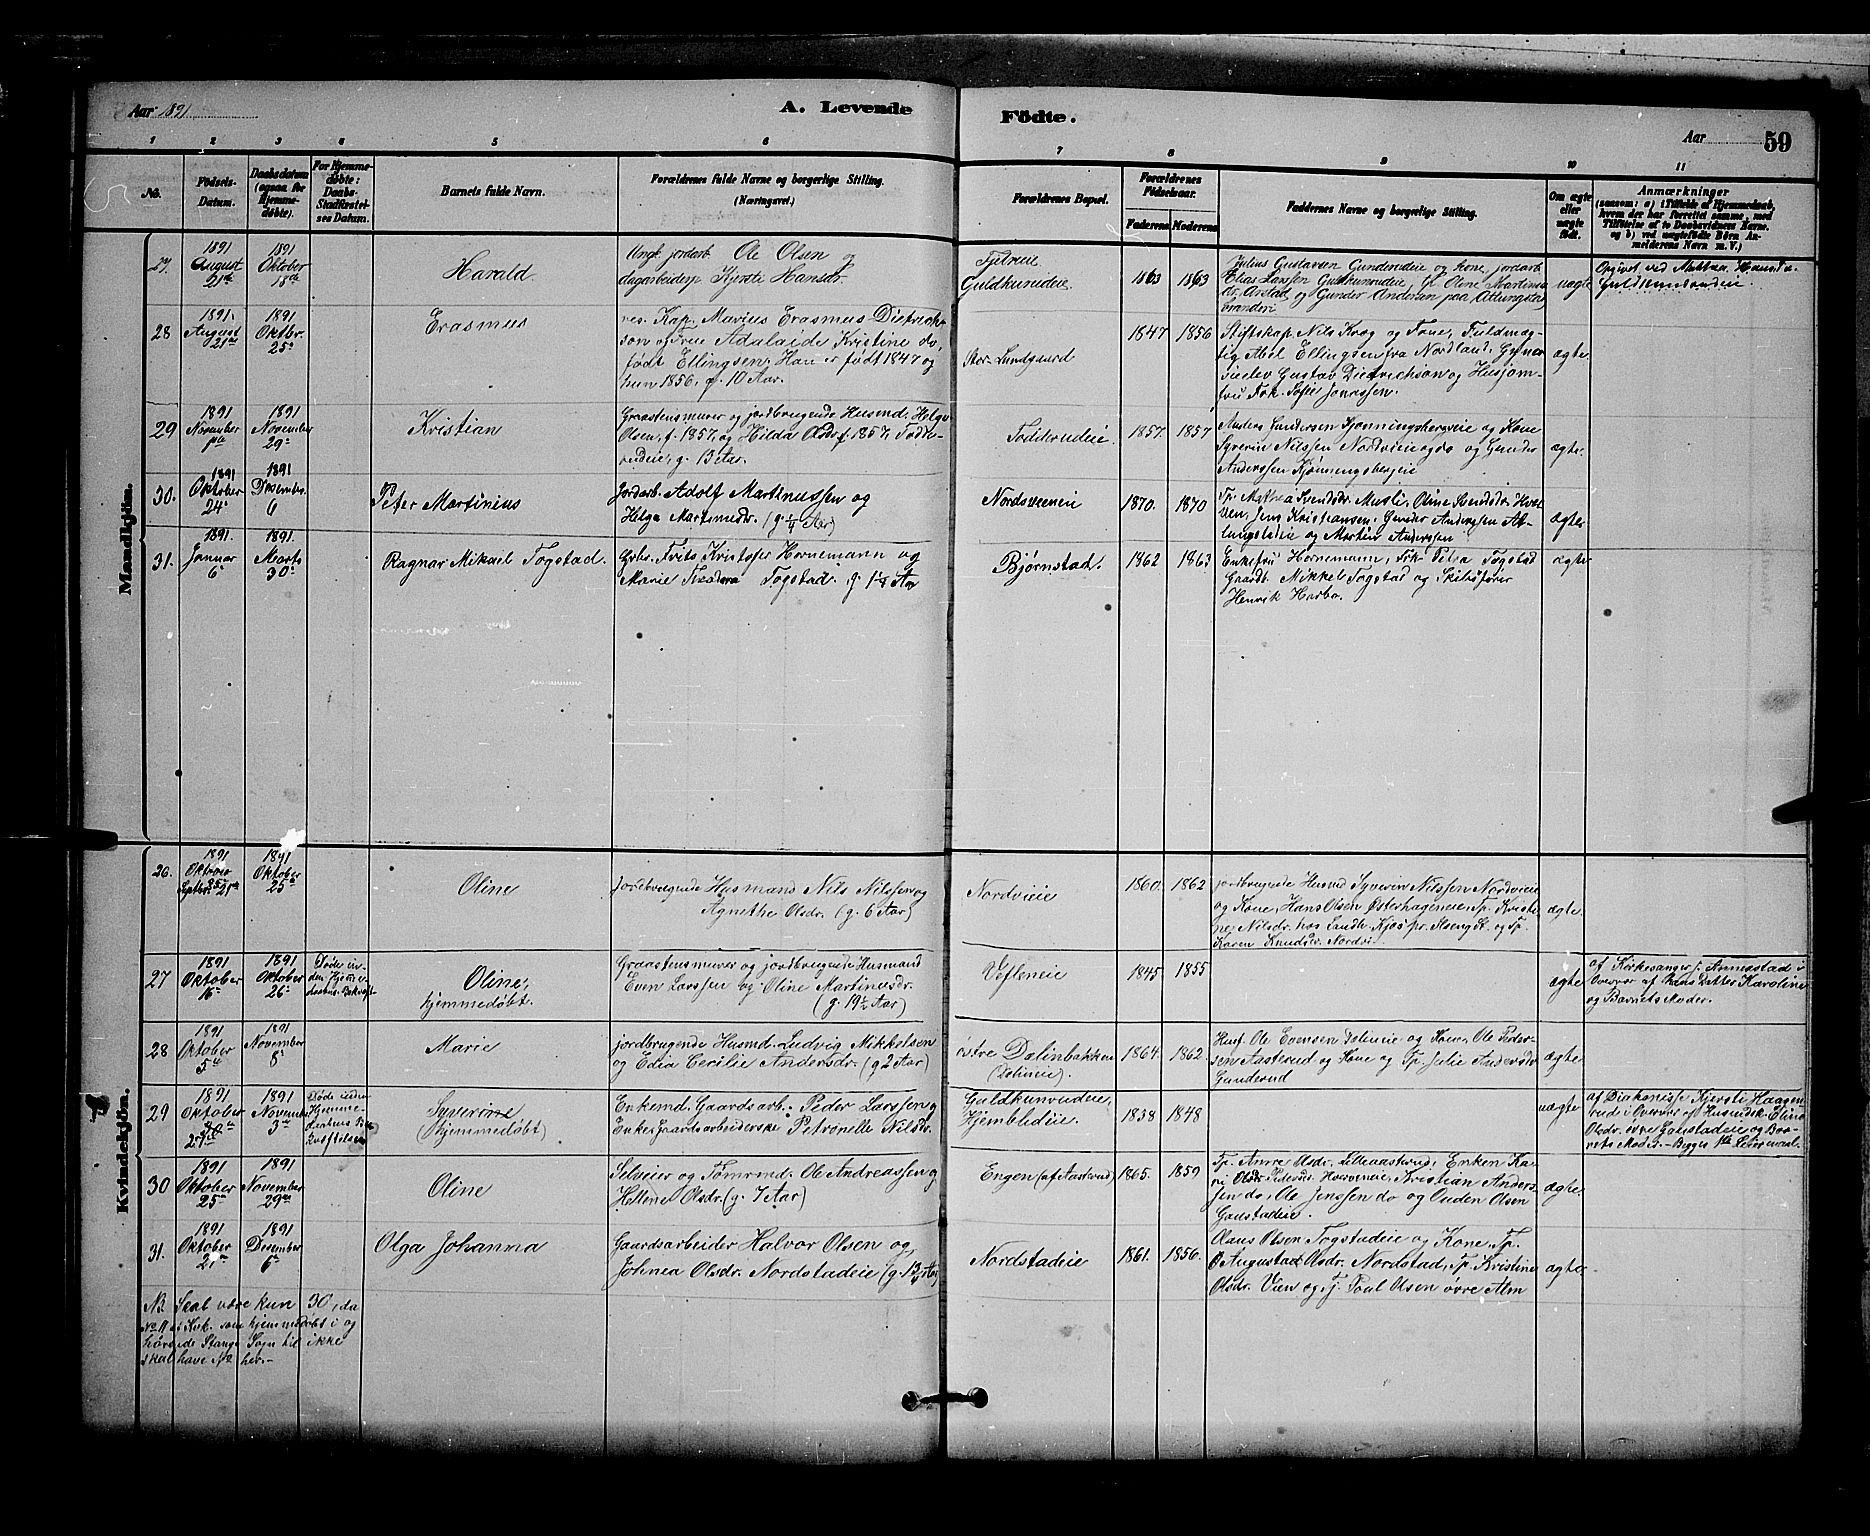 Aar 1891
A. Levende
Födte.
Aar
59
1 2 3 4 5 6 7 8 9 10 11
No.
Födsels-
Datum.
Daabsdatum
(ogsaa for
Hjemme-
døbte).
For Hjemme-
døbte:
Daabs-
Stadfæstel-
ses Datum.
Barnets fulde Navn.
Forældrenes fulde Navne og borgerlige Stilling.
(Næringsvei.)
Forældrenes Bopæl.
Forældrenes
Födselsaar.
Faderens Moderens
Faddernes Navne og borgerlige Stilling.
Om ægte
eller
uægte
født.
Anmærkninger
(saasom: a) i Tilfælde af Hjemmedaab,
hvem der har forrettet samme, med
Tilføielse af to Daabsvidners Navne.
og b) ved uægtefødte Børn An-
melderens Navn m. V.)
Mandkjön.
27.
1891
August
21de
1891
Oktober
18de
Harald
Ungk. jordarb. Ole Olsen og
dagarbeiderp. Kjersti Hansdr.
Guldhunudeie.
1863 1863
Julius Gustavsen Gunderudeie og kone, jordarb.
Elias Larssen Guldhunrudeie, Gt. Oline Martinus
dr. Arstad og Gunder Andersen paa Attungsta
uægte
Opgivet ved
28
1891.
August
21de
1891
Oktbr.
25de
Erasmus
res. Kap. Marius Erasmus Dietrich-
son og Frue Adalaide Kristine do,
født Ellingsen. Han er født 1847 og
hun 1856, g. 10 Aar.
Stor-Lundgaard
1847 1856
Stiftskap. Nils Krog og Frue, Fuldmæg-
tig Abel Ellingsen fra Nordland, Gymna-
sieelev Gustav Dietrichson og Husjom-
fru Frk. Sofie Jonassen.
ægte
29
1891
November
1ste
1891
November
29de
Kristian
Graastensmurer og jordbrugende Husmd. Helge
Olsen, f. 1857, og Hilda Olsdr f. 1857,
g. 13 Aar.
1857. 1857
Anders Gundersen Kjønningsbergeie og Kone
Syverin Nilssen Nordvieie og do og Gunder
Anderssen Kjønningsbergeie
ægte
30.
1891
Oktober
24de
1891
Desember
6
Peter Martinius
Jordarb. Adolf Martinussen og
Helga Martinusdr. (g. ¼ Aar)
Nordsveeneie
1870. 1870
Tp. Mathea Svendsdr. Musli, Oline Svendsdr.
Jens Kristiansen, Gunder Anderssen At-
lungstadeie og Martin Anderssen
ægte
31.
1891.
Januar
6te
1891.
Marts
30te
Ragnar Mikael Togstad.
Gbr. Frits Kristofer Hornemann og
Marie Theodora Togstad. g. 1¼ Aar
Bjørnstad.
1862 1863
Enkefru Hornemann, Frk. Petra Togstad
Gaardb. Mikkel Togstad og Skibsfører
Henrik Harbo.
ægte
Kvindekjön.
26.
1891
Oktober
Septbr. 21de
1891
Oktober
25de
Oline
Jordbrugende Husmand Nils Nilssen og
Agnethe Olsdr. (g. 6 Aar)
Nordvieie
1860. 1862
jordbrugende Husmd Syverin Nilssen Nordvieie
og Kone, Hans Olsen Østerhageneie, Tp. Kristi-
ne Nilsdr. hos Landh. Kjøs pr. Stseng St. og Tp.
Karen Knudsdr. Nordvi.
ægte.
27
1891
Oktober
16de
1891
Oktober
26de
Døde in-
den Hjemme-
daabens Bekræft.
Oline,
hjemmedøbt.
Graastensmurer og jordbrugende Husmand
Even Larssen og Oline Martinusdr.
(g. 19½ Aar)
Vefleneie
1845 1855
ægte
af Kirkesanger J. Annestad i
Overvær af Hans Datter Karoline
og Barnets Moder.
28
1891
Oktober
5te
1891
November
8de
Marie
jordbrugende Husmd. Ludvig Mikkelsen
og Edia Cecilie Andersdr. (g 2 Aar)
østre Dalinbakken
(Dalineie).
1864. 1862.
Husf. Ole Evensen Dalineie og Kone, Ole Peder-
sen Aasterud og Kone og Tp. Julie Andersdr
Gunderud
ægte
29
1891
Oktober
27de
1891
November
3de
Døde uden
Hjemme-
daabens
Syverine
(hjemmedøbt)
Enkemd. Gaardsarb. Peder Larssen og
Enke Gaardsarbeiderske Petronelle Nilsdr.
Guldhunrudeie,
Hjembledeie
1838 1848
uægte
af Diakonisse Kjersti Haagen-
rud i Overvær af Husmdsk. Eline
Olsdr. øvre Gaustadeie og Bar-
nets Moder. - Begges 1ste Leiermaal.
30
1891
Oktober
25de
1891
November
29de
Oline
Selveier og Tømrmd. Ole Andreassen og
Helline Olsdr. (g. 7 Aar)
Engen (af Aasterud)
1865. 1859
Tp. Anne Olsdr. Lilleaasterud, Enken Ka-
ri Pedersdr. Horveneie, Kristian Anders-
sen do, Ole Jenssen do og Ouden Olsen
Gaustadeie.
ægte
31.
1891
Oktober
21de
1891
Desember
6te
Olga Johanna
Gaardsarbeider Halvor Olsen og
Johnea Olsdr. Nordstadeie
Nordstadeie
1861. 1856.
Olaus Olsen Togstadeie og Kone, Tp.
Augusta Olsdr. Nordstad, Tp. Kristine
Olsdr. Vien og Tj. Poul Olsen øvre Alm
ægte
NB. Skal være kun 30, da
No 11 et Kvk. som hjemmedøbt i og
hørende Stange Sogn til ikke
skal have No her.-